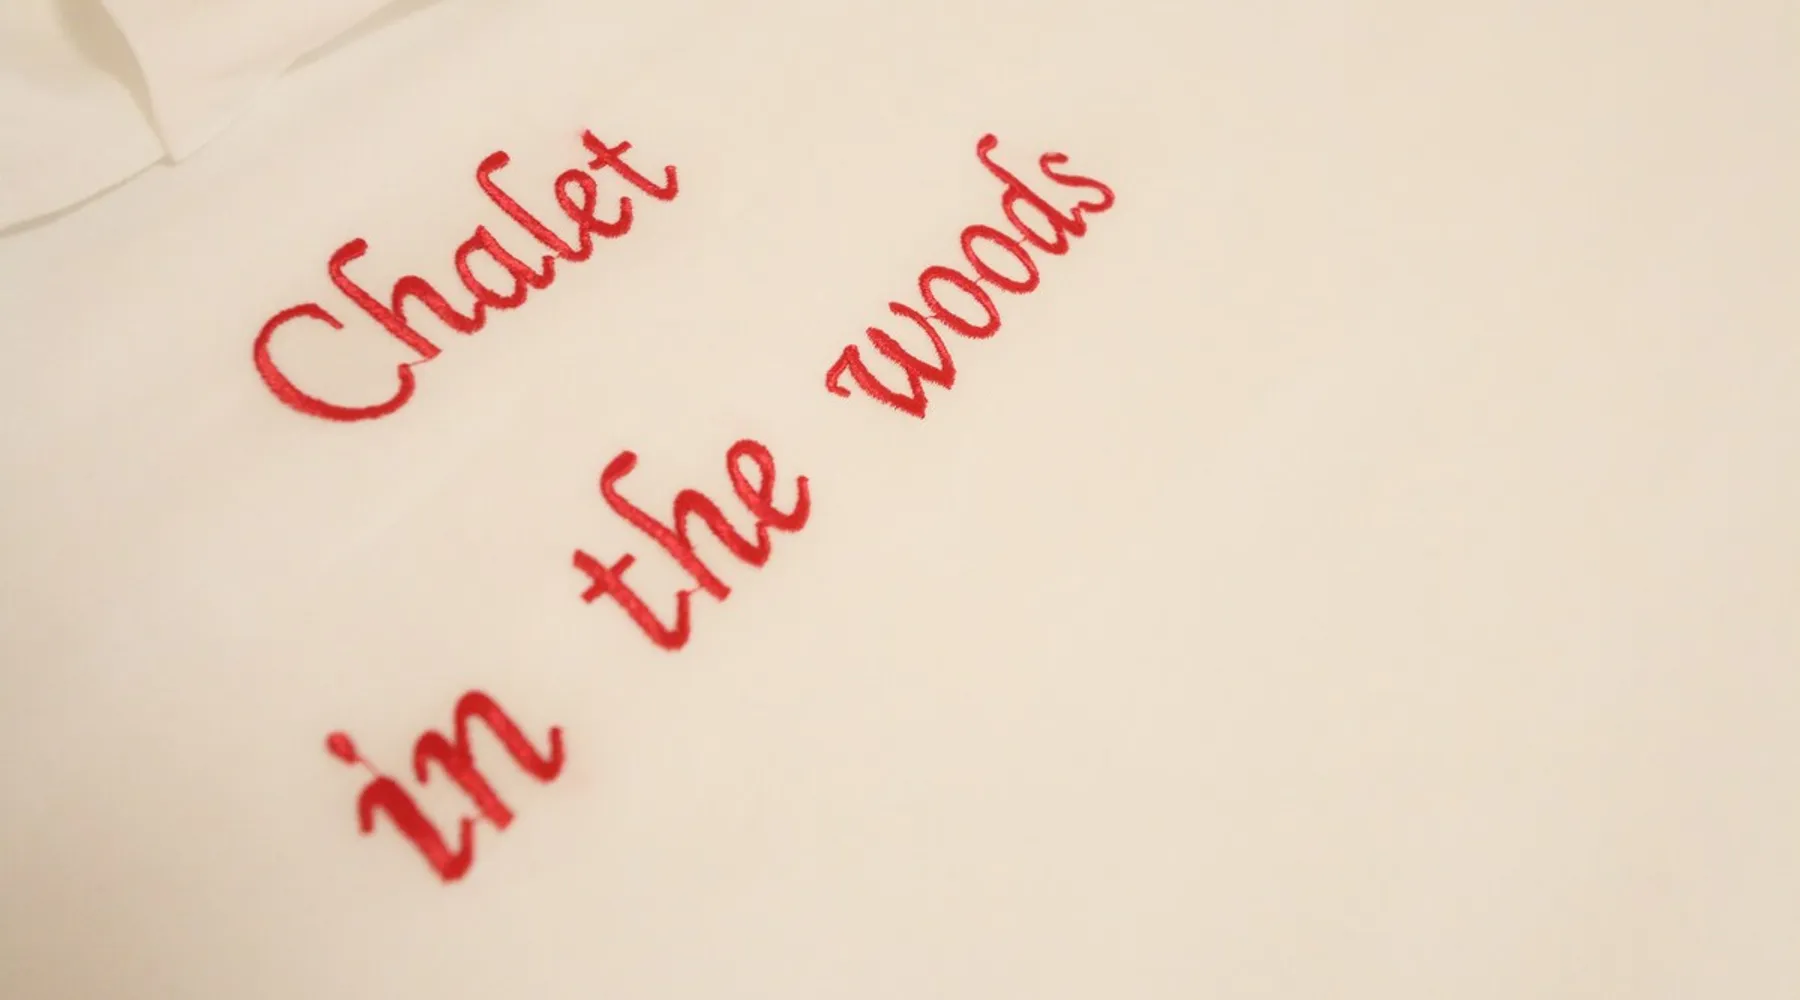 Chalet
in the woods